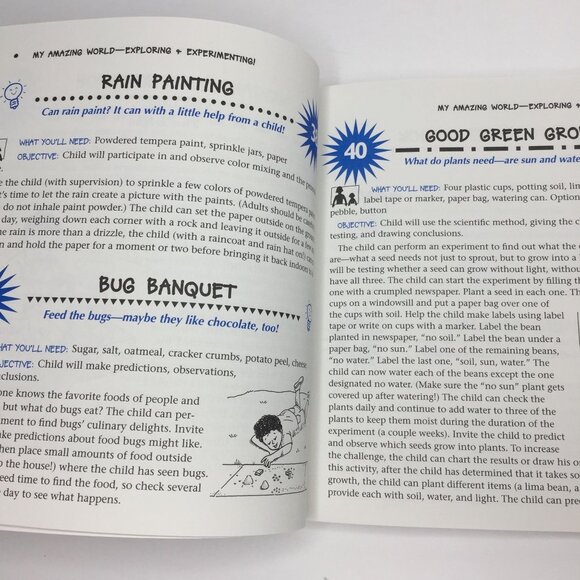 MY AMAZING WORLD—EXPLORING & EXPERIMENTING!
RAIN PAINTING
Can rain paint? It can with a little help from a child!
WHAT YOU'LL NEED: Powdered tempera paint, sprinkle jars, paper
OBJECTIVE: Child will participate in and observe color mixing and the
the child (with supervision) to sprinkle a few colors of powdered tempera
time to let the rain create a picture with the paints. (Adults should be
do not inhale paint powder.) The child can set the paper outside on the
day, weighing down each corner with a rock and leaving it outside for a
rain is more than a drizzle, the child (with a raincoat and rain hat on!)
and hold the paper for a moment or two before bringing it back indoors
BUG BANQUET
Feed the bugs—maybe they like chocolate, too!
WHAT YOU'LL NEED: Sugar, salt, oatmeal, cracker crumbs, potato peel, cheese
Child will make predictions, observations,
knows the favorite foods of people and
but what do bugs eat? The child can per-
to find bugs' culinary delights. Invite
predictions about food bugs might like.
place small amounts of food outside
to the house!) where the child has seen bugs.
need time to find the food, so check several
day to see what happens.
MY AMAZING WORLD—EXPLORING &
40
GOOD GREEN
What do plants need—are sun and
WHAT YOU'LL NEED: Four plastic cups, potting soil,
label tape or marker, paper bag, watering can.
pebble, button
OBJECTIVE: Child will use the scientific method, giving the
testing, and drawing conclusions.
The child can perform an experiment to find out what the
are—what a seed needs not just to sprout, but to grow into a
will be testing whether a seed can grow without light, without
have all three. The child can start the experiment by filling
one with crumpled newspaper. Plant a seed in each one.
cups on a windowsill and put a paper bag over one of
the cups with soil. Help the child make labels using label
tape or write on cups with a marker. Label the bean
planted in newspaper, "no soil." Label the bean under a
paper bag, "no sun." Label one of the remaining beans,
"no water." Label the last one, "soil, sun, water." The
child can now water each of the beans except the one
designated no water. (Make sure the "no sun" plant gets
covered up after watering!) The child can check the
plants daily and continue to add water to three of the
plants to keep them moist during the duration of the
experiment (a couple weeks). Invite the child to predict
and observe which seeds grow into plants. To increase
the challenge, the child can chart the results or draw his or
this activity, after the child has determined that it takes
growth, the child can plant different items (a lima bean, a
provide each with soil, water, and light. The child can